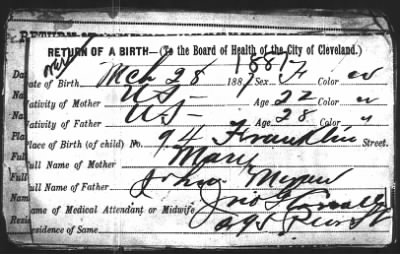 RETURN OF A BIRTH—(To the Board of Health of the City of Cleveland.)
over 1887
Date of Birth, Mch 28 1887 Sex, F Color w
Nativity of Mother US - Age, 22 Color w
Nativity of Father US - Age, 28 Color "
Place of Birth (of child) No. 94 Franklin Street.
Full Name of Mother Mary
Full Name of Father John
Name of Medical Attendant or Midwife Jno
Residence of Same 295 Pearl St